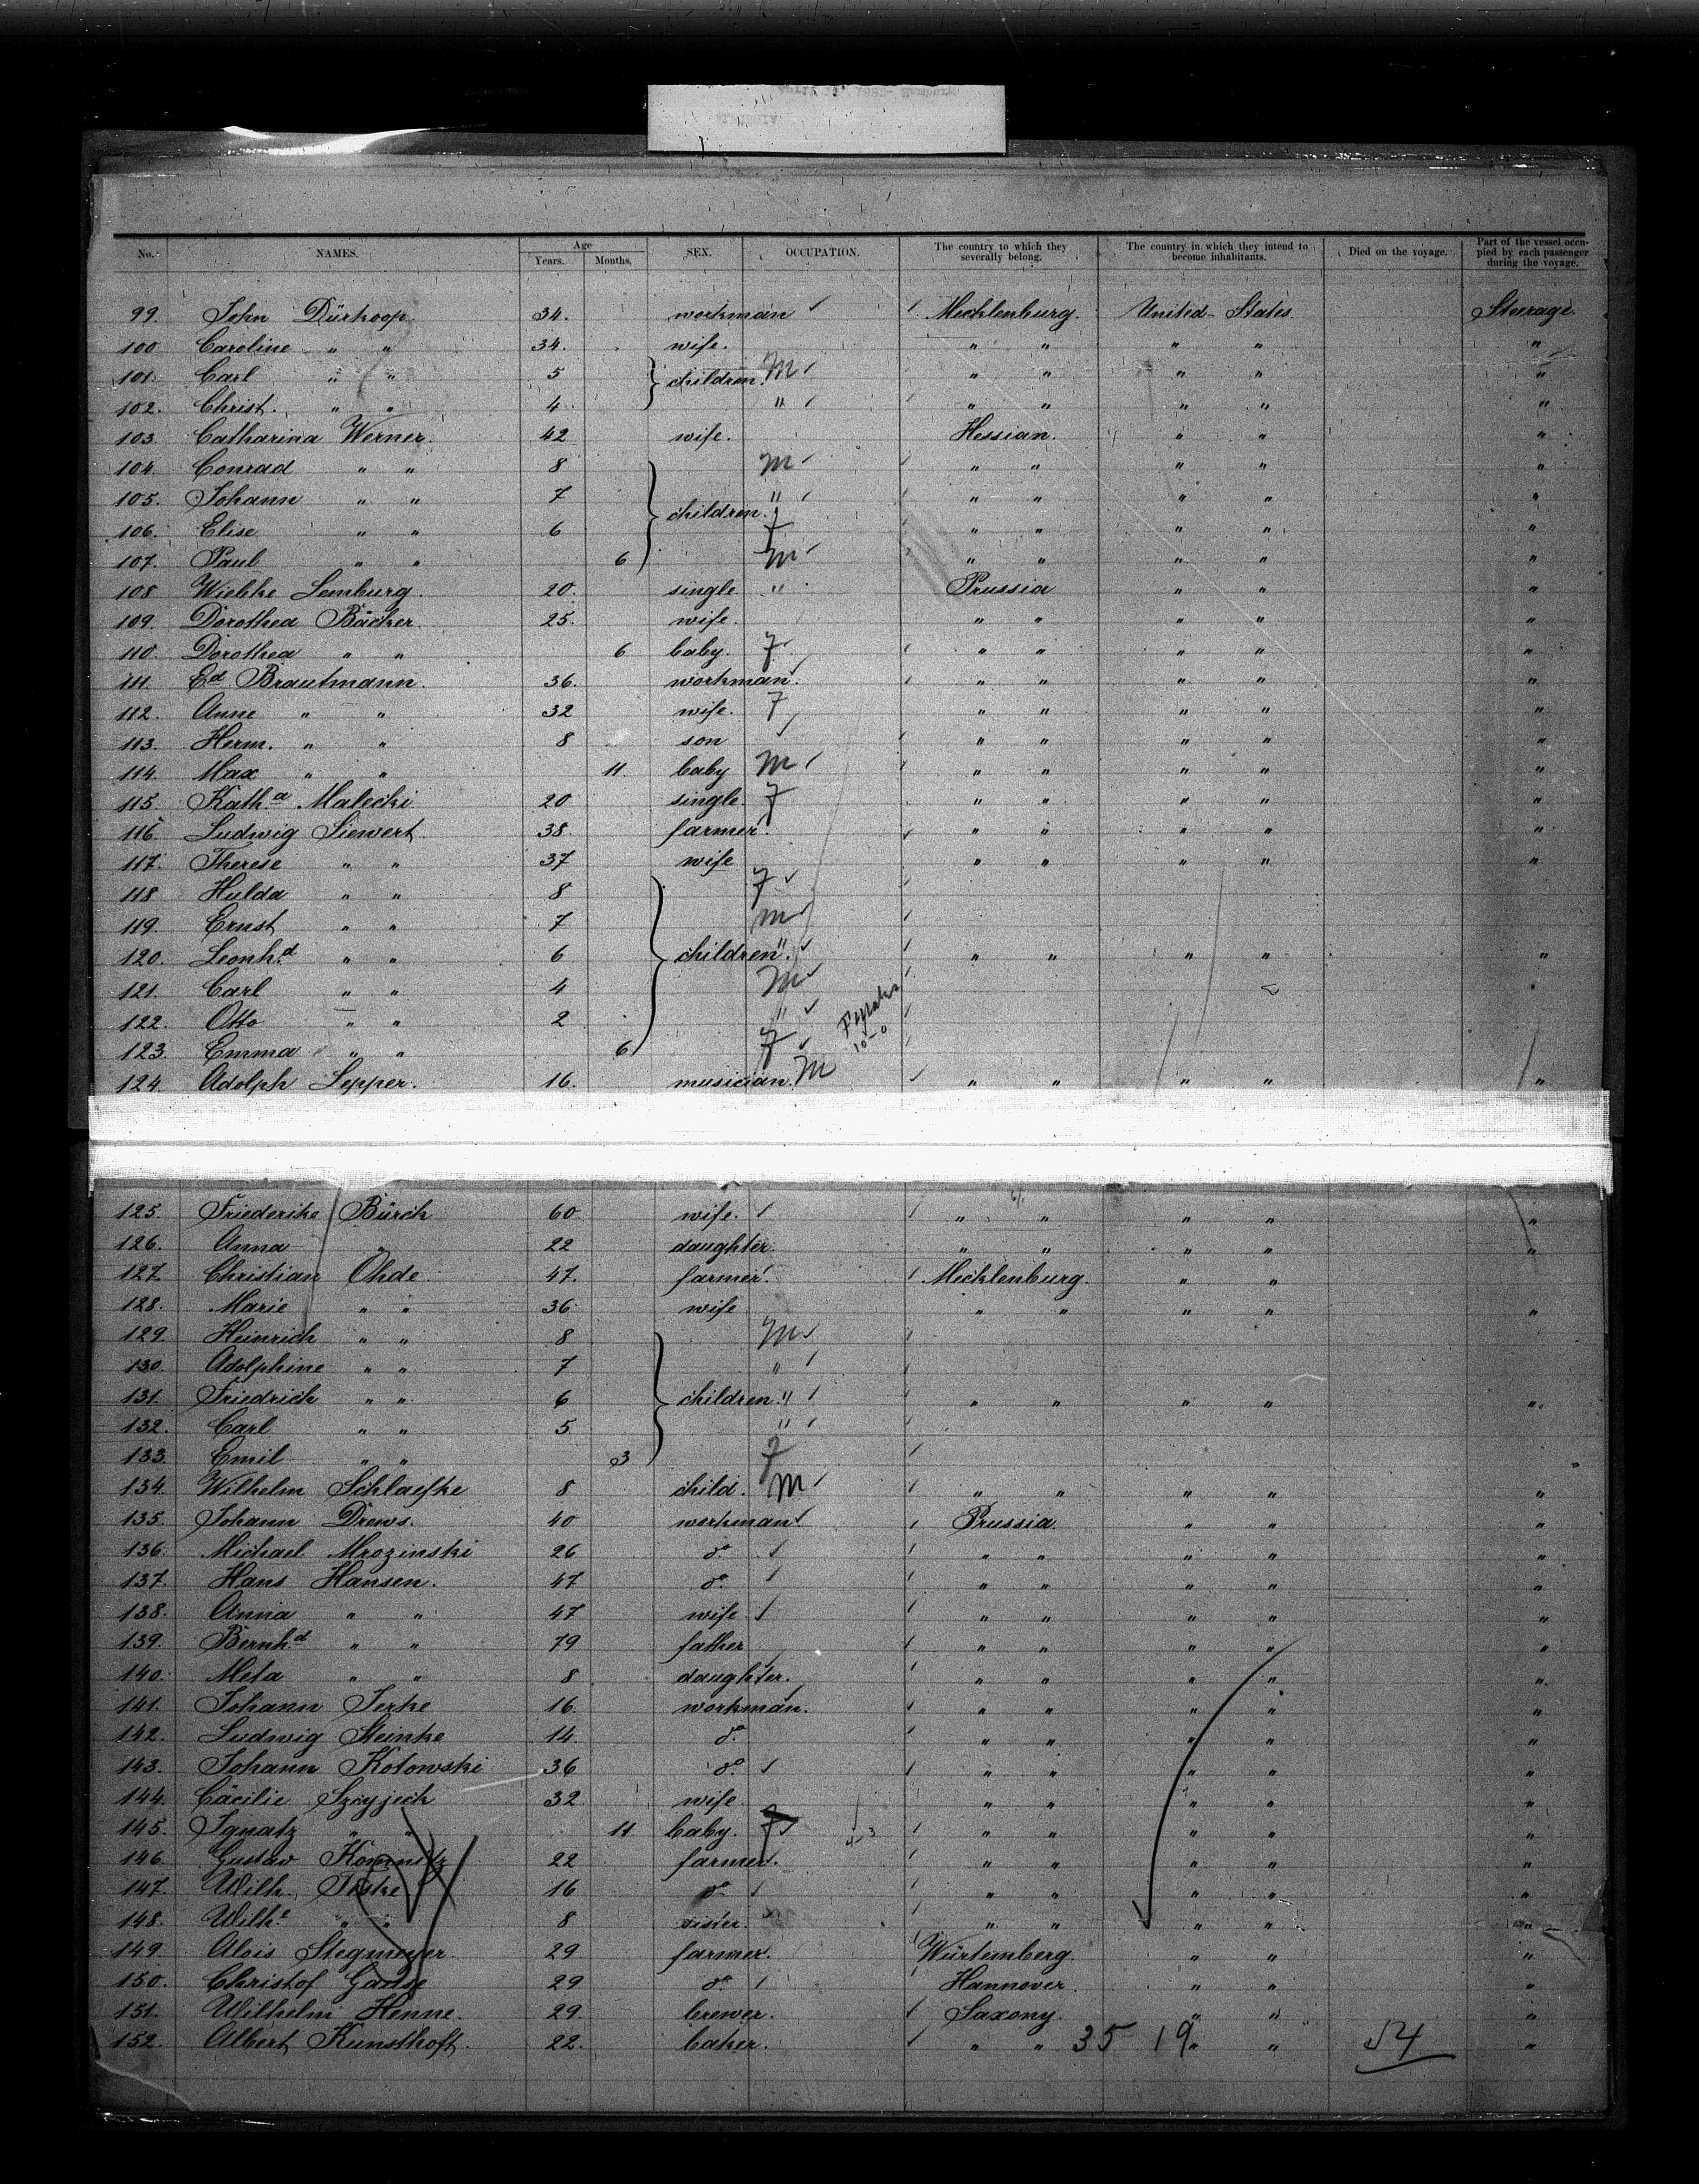 No. NAMES. Age Years. Months. SEX. OCCUPATION. The country to which they severally belong. The country in which they intend to become inhabitants. Died on the voyage. Part of the vessel occupied by each passenger during the voyage.
99. John Dürkoop. 34. workman Mecklenburg. United States. Steerage.
100 Caroline " " 34. wife. " " " " "
101. Carl " " 5 children. M " " " " "
102. Christ. " " 4 " " " " " "
103. Catharina Werner. 42 wife. Hessian. " " "
104. Conrad " " 8 M " " " " "
105. Johann " " 7 children. " " " " " "
106. Elise " " 6 f " " " " "
107. Paul " " 6 M " " " " "
108 Wiebke Lemburg. 20. single " Prussia " " "
109. Dorothea Bäcker. 25. wife. " " " " "
110. Dorothea " " 6 baby. f " " " " "
111. Ed Brautmann. 36. workman. " " " " "
112. Anne " " 32 wife. f " " " " "
113. Herm. " " 8 son " " " " "
114. Max " " 11 baby M " " " " "
115. Kath.a Malecki 20 single. f " " " " "
116. Ludwig Siewert 38. farmer. " " " " "
117. Therese " " 37 wife " " " " "
118 Hulda " " 8 f
119. Ernst " " 7 m
120. Leonh.d " " 6 children. " " " " " "
121. Carl " " 4 M "
122. Otto " " 2 "
123. Emma " " 6 f 10-0
124. Adolph Lepper. 16. musician. M " " " " "
125. Friederike Bürch 60 wife. " " " " "
126. Anna " 22 daughter. " " " " "
127. Christian Ohde. 47. farmer. Mecklenburg. " "
128. Marie " " 36. wife " " " " "
129. Heinrich " " 8 M
130. Adolphine " " 7 "
131. Friedrich " " 6 children. " " " " " "
132. Carl " " 5 "
133. Emil " " 3 f
134. Wilhelm Schlaefke 8 child. M " " " " "
135. Johann Drews. 40 workman. Prussia. " " "
136. Michael Mrozinski 26 do. " " " " "
137. Hans Hansen. 47 do. " " " " "
138. Anna " " 47 wife " " " " "
139. Bernh.d " " 79 father " " " " "
140. Meta " " 8 daughter. " " " " "
141. Johann Jerke 16. workman. " " " " "
142. Ludwig Steinke 14. do. " " " " "
143. Johann Kotowski 36 do. " " " " "
144. Cäcilie 32 wife " " " " "
145. Ignatz " " 11 baby. f 4-3 " " " " "
146. Gustav 22 farmer. " " " " "
147. Wilh. Teske 16 do. " " " " "
148. Wilh.e " " 8 sister. " " " " "
149. Alois Stegmeyer. 29 farmer. Würtemberg. " " "
150. Christof 29 do. Hannover. " " "
151. Wilhelm Henne. 29. brewer. Saxony. " " "
152. Albert Kunsthoft. 22. baker. " " 35 19 " " 54 "